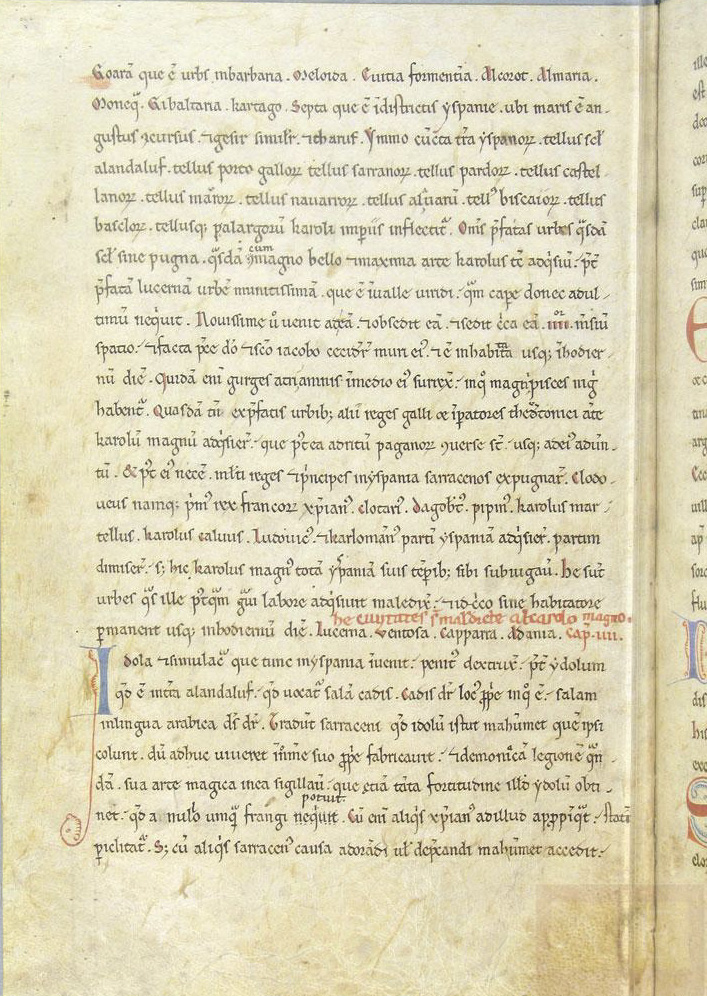 Goarā que ē urbs inbarbaria. Meloida. Euitia formentia. Alcorot. Almaria.
Moneq̄. Gibaltaria. kartago. Septa que ē īdistrictis yspanie. ubi maris ē an-
gustus ꝯcursus. ⁊gesir simil'r. ⁊tharuf. Ymmo cūcta tr̄a yspanoꝝ. tellus scł
alandaluf. tellus porto galloꝝ tellus sarranoꝝ. tellus pardoꝝ. tellus castel-
lanoꝝ. tellus mauroꝝ. tellus nauarroꝝ. tellus asturiū. tell' biscaioꝝ. tellus
bascloꝝ. tellusq; palargorū karoli imperiis inflectit᷑. Om̄s p̄fatas urbes q̄sdā
scł sine pugna. q̄sdā cum magno bello ⁊maxima arte karolus tc̄ adq̄siu᷑. p̄t
p̄fatā lucernā urbē munitissimā. que ē īualle uiridi. q̄m cape donec adul-
timū neq̄uit. Nouissime u̾ uenit ad eā. ⁊obsedit eā. ⁊sedit c̄ca eā. iiii. m̄siū
spatio. ⁊facta p̄ce dō ⁊sc̄o iacobo cecider̄ muri ei'. ⁊ē inhabitata usq; īhodier-
nū diē. Quidā eni gurges atri amnis īmedio ei' surrex᷑. inq̊ magni pisces nig̊
habent᷑. Quasdā tn̄ exp̄fatis urbib; alii reges galli ⁊ īpatores theotonici ate
karolū magnū adq̄sier̄. que p̊tea adritū paganoꝝ ꝯuerse st̄. usq; adei' aduen-
tū. & p̊t ei' nece᷑. m̄lti reges ⁊p̄ncipes inyspania sarracenos expugnar̄. Clodo-
ueus namq; p̄m' rex francoꝝ xp̄ian'. Clotari'. Dagob̄t'. pipin'. karolus mar-
tellus. karolus caluus. Ludouic'. ⁊karloman' partī yspaniā adq̄sier̄. partim
dimiser̄. s; hic karolus magn' totā yspaniā suis tēpib; sibi subiugau᷑. he sūt
urbes q̄s ille p̊tq̄m g̊ui labore adq̄siuit maledix᷑. ⁊id c̄co sine habitatore
he ciuitates s̄ maldicte akarolo magno.
ꝑmanent usq; inhodiernū diē. Lucerna. Ventosa. Capparra. Adania. Cap. iiii.
Idola ⁊simulac̄ que tunc inyspania īuenit. penit' dextrux᷑. p̄t ydolum
qd̄ ē īntr̄a alandaluf. qd̄ uocat᷑ salā cadis. Cadis dr̄ loc' ꝓpe inq̊ ē. salam
inlingua arabica ds̄ dr̄. Tradūt sarraceni qd̄ idolū istut mahumet quē ipsi
colunt. dū adhuc uiueret īnōīe suo ꝓpe fabricauit. ⁊demonicā legionē q̄n-
dā. sua arte magica inea sigillau᷑. que etiā tāta fortitudine illd̄ ydolū obti-
net. qd̄ a nullo umq̄ frangi potuit. neq̄uit. Cū eni aliq̊s xp̄ian' adillud appropīq̄t. statī
ꝑiclitat᷑. S; cū aliq̊s sarracen' causa adorādi ul̄ dep̄candi mahumet accedit.